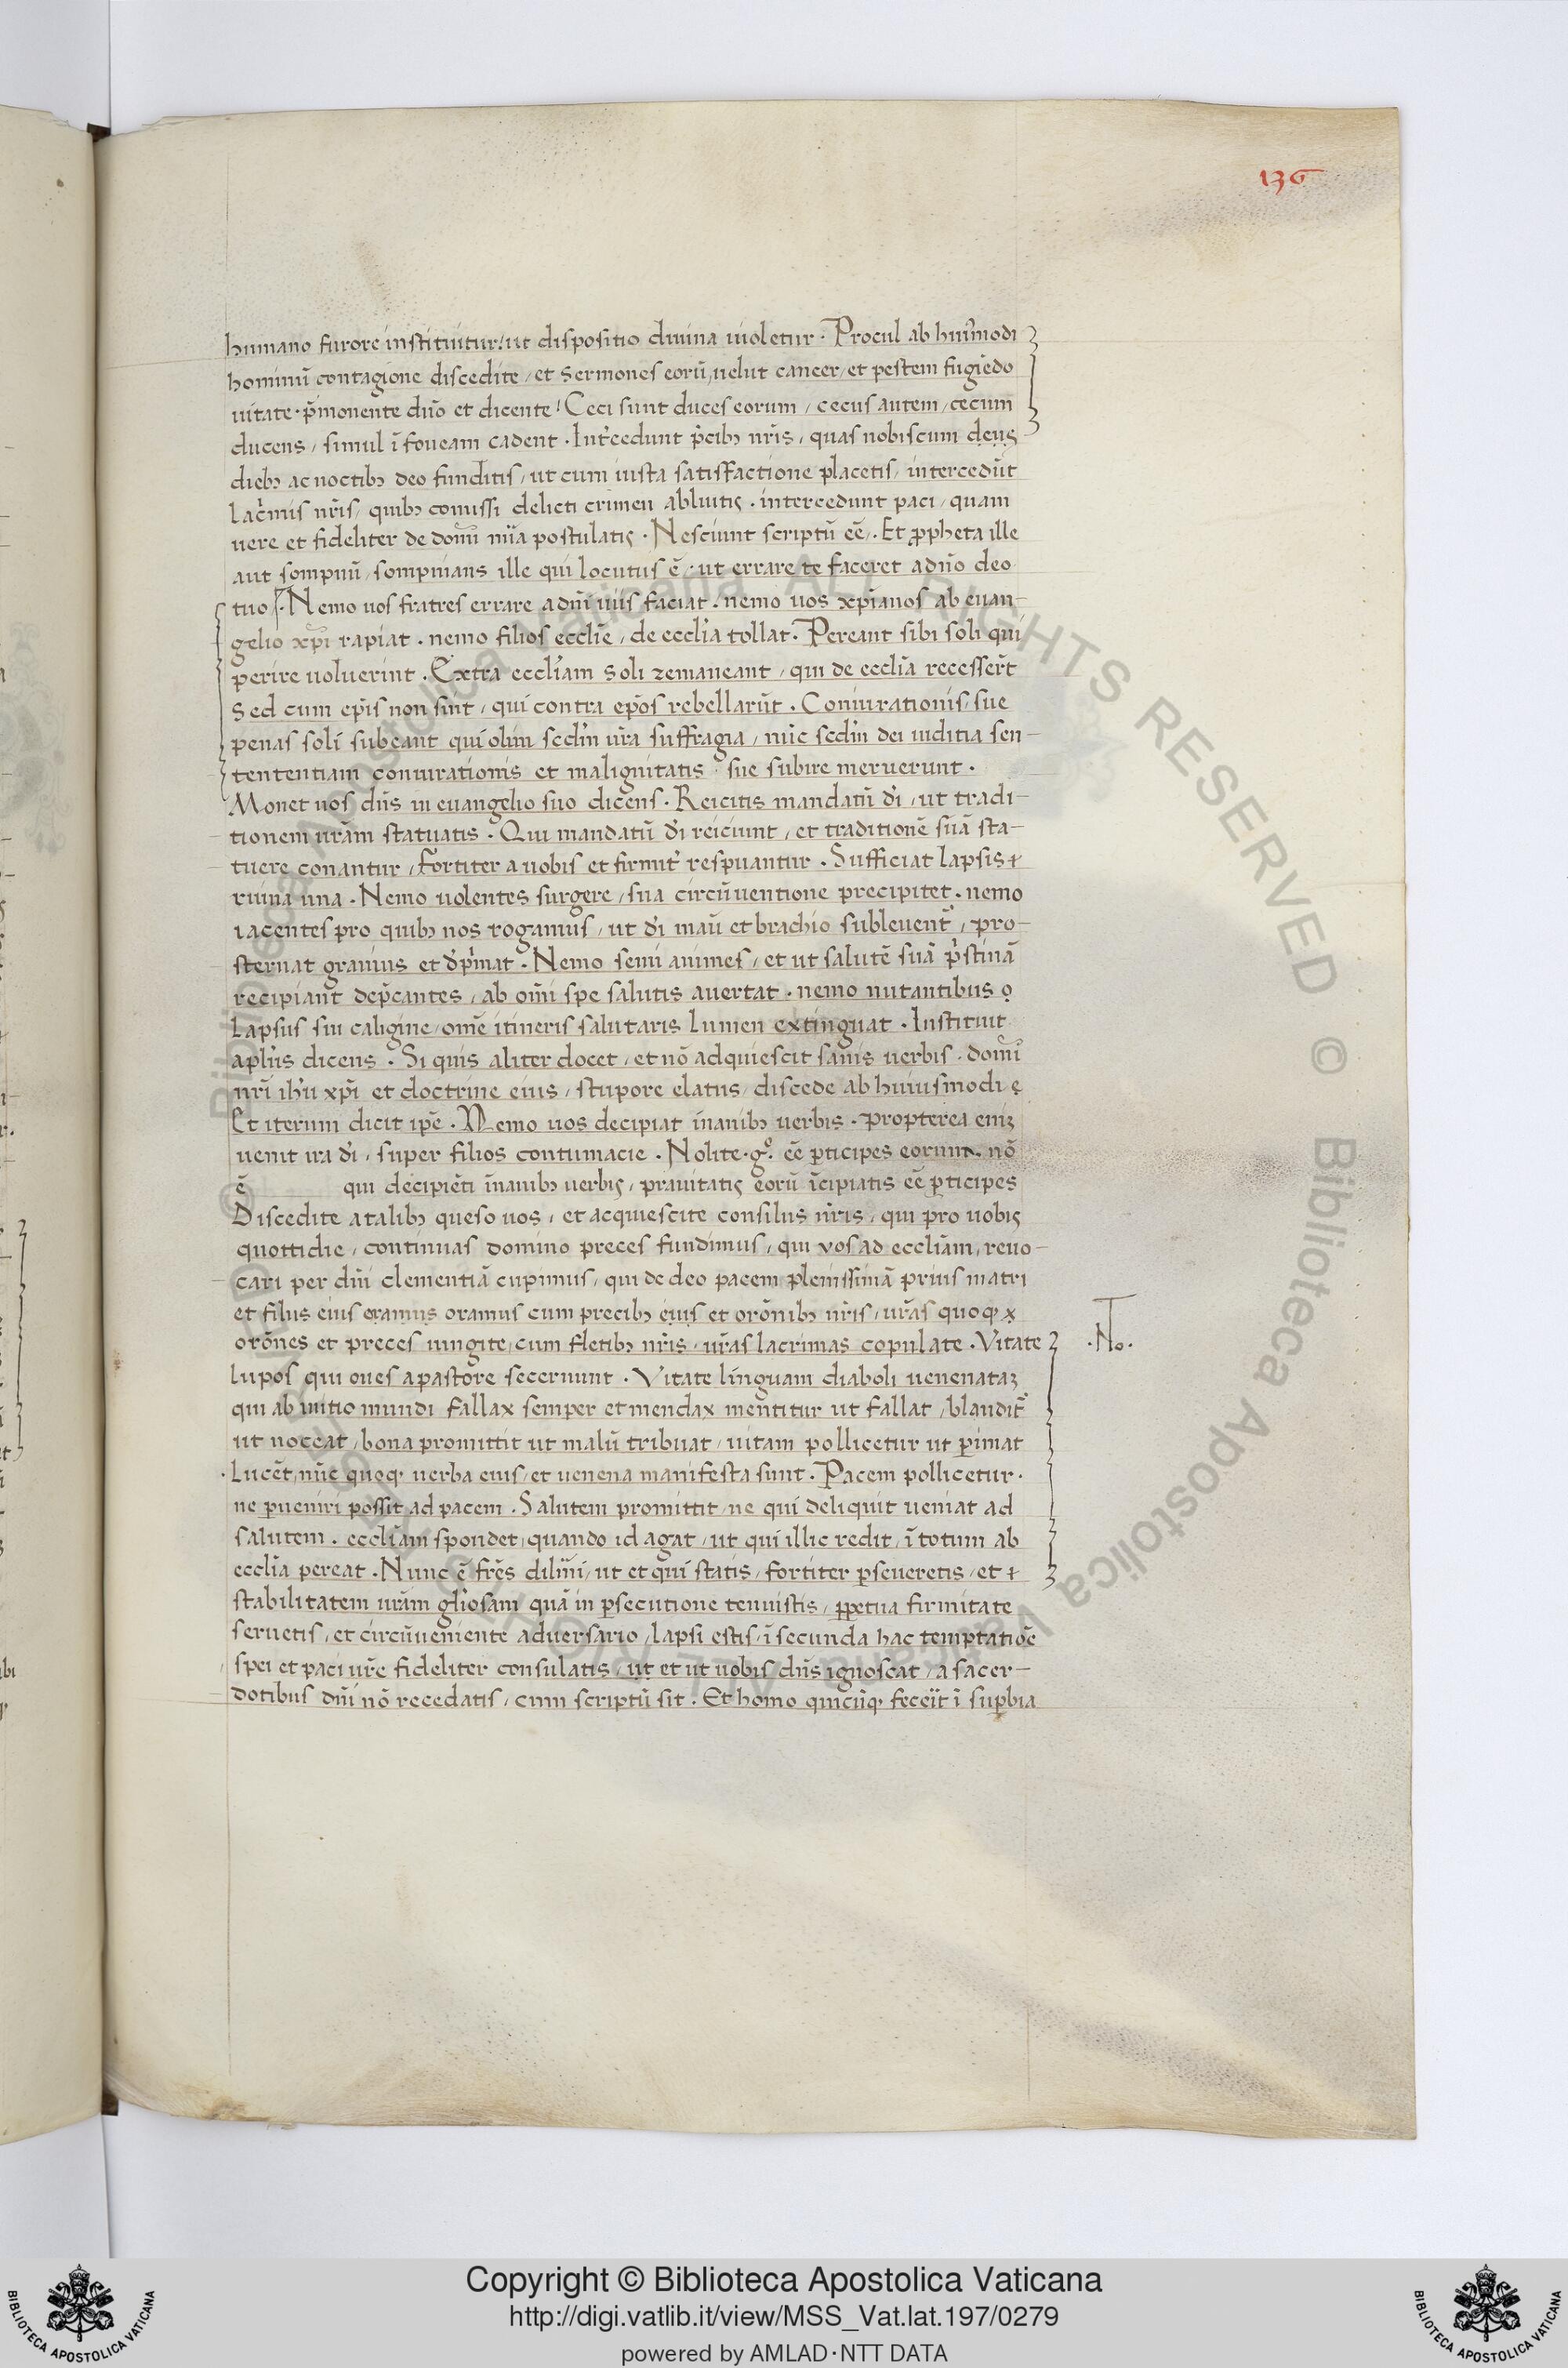 136
humano furore instituitur! ut dispositio diuina uioletur · Procul ab huiꝰmodi
hominū contagione discedite / et sermones eorū / uelut cancer / et pestem fugiēdo
uitate · p̄monente dn̄o et dicente! Ceci sunt duces eorum / cecus autem / cecum
ducens / simul ī foueam cadent · Int̾cedunt p̄cibꝫ nr̄is / quas nobiscum deus
diebꝫ ac noctibꝫ deo funditis / ut cum iusta satisfactione placetis / intercedūt
lac̾mis nr̄is / quibꝫ comissi delicti crimen abluitis · intercedunt paci / quam
uere et fideliter de domī mīa postulatis · Nesciunt scriptū eē / · Et ꝓpheta ille
aut sompnū / sompnians ille qui locutus ē / · ut errare te faceret adn̄o deo
tuo · Nemo uos fratres errare adn̄i uiis faciat · nemo uos xp̄ianos ab euan-
gelio xp̄i rapiat · nemo filios eccl̄ie / de eccl̄ia tollat · Pereant sibi soli qui
perire uoluerint · Extra eccl̄iam soli remaneant / qui de eccl̄ia recesser̄t
Sed cum ep̄is non sint / qui contra ep̄os rebellarūt · Coniurationis / sue
penas soli subeant qui olim sec̄dm ur̄a suffragia / nūc sec̄dm dei iuditia sen-
tententiam coniurationis et malignitatis / sue subire meruerunt ·
Monet uos dn̄s in euangelio suo dicens · Reicitis mandatū dī / ut tradi-
tionem ur̄am statuatis · Qui mandatū dī reiciunt / et traditionē suā sta-
tuere conantur / fortiter a uobis et firmit̾ respuantur · Sufficiat lapsis
ruina una · Nemo uolentes surgere / sua circūuentione precipitet · nemo
iacentes pro quibꝫ nos rogamus / ut dī manū et brachio subleuent̾ / pro-
sternat grauius et dp̾mat · Nemo semi animes / et ut salutē suā p̾stinā
recipiant dep̄cantes / ab om̄i spe salutis auertat · nemo nutantibus
lapsus sui caligine / om̄e itineris salutaris lumen extinguat · Instituit
apl̄us dicens · Si quis aliter docet / et nō adquiescit sanis uerbis · domī
nr̄i ih̄u xp̄i et doctrine eius / stupore elatus / discede ab huiusmodi
Et iterum dicit ip̄e · Nemo uos decipiat inanibꝫ uerbis · propterea eniꝫ
uenit ira dī / super filios contumacie · Nolite · gͦ · eē ꝑticipes eorum · nō
ē qui decipiēti īnanibꝫ uerbis / prauitatis eorū īcipiatis eē ꝑticipes
Discedite a talibꝫ queso uos / et acquiescite consiliis nr̄is / qui pro uobis
quottidie / continuas domino preces fundimus / qui vos ad eccl̄iam / reuo-
cari per dn̄i clementiā cupimus / qui de deo pacem plenissimā prius matri
et filiis eius eramus oramus cum precibꝫ eius et or̄onibꝫ nr̄is / ur̄as quoqꝫ
or̄ones et preces iungite / cum fletibꝫ nr̄is / ur̄as lacrimas copulate · Vitate
·No·
lupos qui oues a pastore secernunt · Vitate linguam diaboli uenenataꝫ
qui ab initio mundi fallax semper et mendax mentitur ut fallat / blandit̾
ut noceat / bona promittit ut malū tribuat / uitam pollicetur ut ꝑimat
· Lucēt / nūc quoqꝫ uerba eius / et uenena manifesta sunt · Pacem pollicetur ·
ne ꝑueniri possit ad pacem · Salutem promittit / ne qui deliquit ueniat ad
salutem · eccl̄iam spondet / quando id agat / ut qui illic redit / ī totum ab
eccl̄ia pereat · Nunc ē fr̄es dil̄mi / ut et qui statis / fortiter ꝑseueretis / et
stabilitatem ur̄am gl̄iosam quā in ꝑsecutione tenuistis / ꝑpetua firmitate
seruetis / et circūueniente aduersario / lapsi estis / ī secunda hac temptatiōe
spei et paci ur̄e fideliter consulatis / ut et ut uobis dn̄s ignoscat / a sacer-
dotibus dn̄i nō recedatis / cum scriptū sit · Et homo quicūqꝫ feceit ī suꝑbia
Copyright © Biblioteca Apostolica Vaticana
http://digi.vatlib.it/view/MSS_Vat.lat.197/0279
powered by AMLAD·NTT DATA